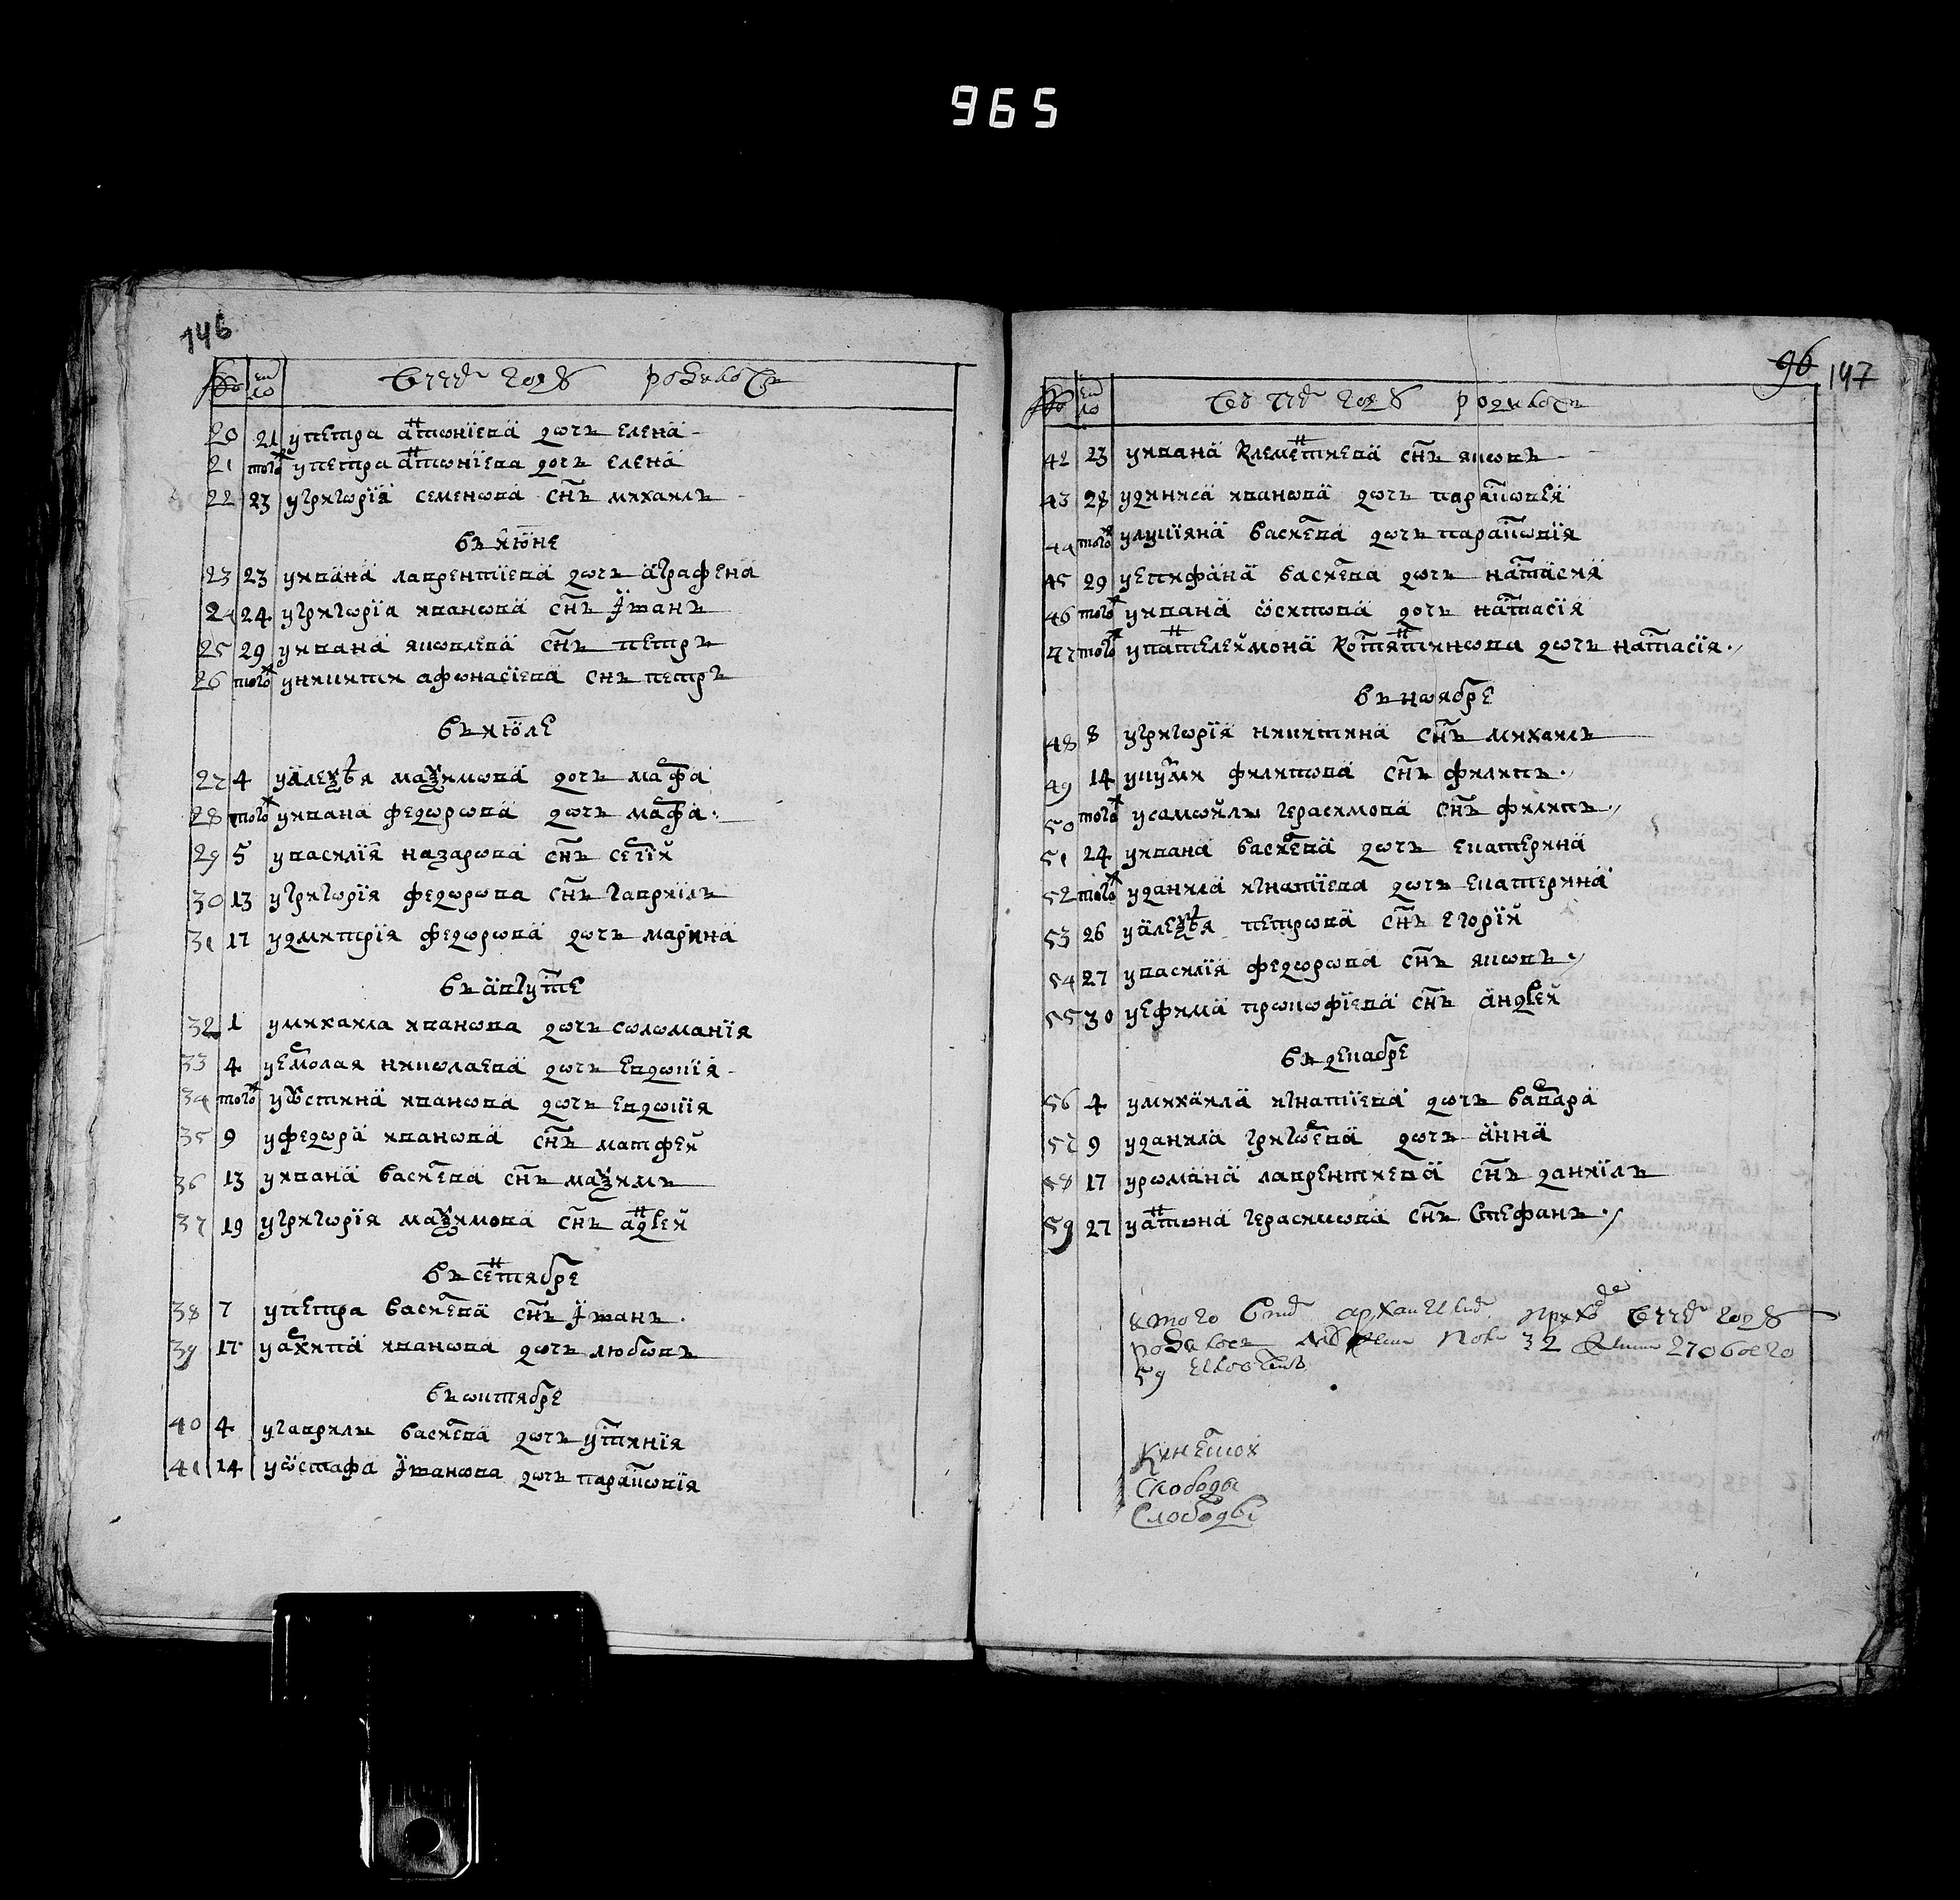 965
146
число году родилося
20 21 у петра антониева дочь елена
21 того ж у петра антониева дочь елена
22 23 у григория семенова снъ михаилъ
въ июне
23 23 у ивана лаврентиева дочь аграфена
24 24 у григория иванова снъ иѡанъ
25 29 у ивана яковлева снъ петръ
26 того ж у никити афонасиева снъ петръ
въ июле
27 4 у алеѯѣя маѯимова дочь марфа
28 того ж у ивана федорова дочь марфа
29 5 у василия назарова снъ сергий
30 13 у григория федорова снъ гавриилъ
31 17 у дмитрия федорова дочь марина
въ августе
32 1 у михаила иванова дочь соломания
33 4 у ермолая николаева дочь евдокия
34 того ж у устина иванова дочь евдокия
35 9 у федора иванова снъ матфей
36 13 у ивана василева снъ маѯимъ
37 19 у григория маѯимова снъ андрей
въ сентябре
38 7 у петра василева снъ иѡанъ
39 17 у архипа иванова дочь любовь
въ октябре
40 4 у гаврилы василева дочь устиния
41 14 у остафа иѡанова дочь парасковия
96 147
число году родилося
42 23 у ивана клементиева снъ яковъ
43 28 у дениса иванова дочь парасковея
44 того ж у лукияна василева дочь парасковия
45 29 у епифана василева дочь настасия
46 того ж у ивана осипова дочь настасия
47 того ж у пантелеймона костянтинова дочь настасия
въ ноябре
48 8 у григория никитина снъ михаилъ
49 14 у кузми филипова снъ филипъ
50 того ж у самойлы герасимова снъ филипъ
51 24 у ивана василева дочь екатерина
52 того ж у данила игнатиева дочь екатерина
53 26 у алеѯѣя петрова снъ егорий
54 27 у василия федорова снъ яковъ
55 30 у ефима прокофиева снъ андрей
въ декабре
56 4 у михаила игнатиева дочь варвара
57 9 у данила григорева дочь анна
58 17 у романа лаврентиева снъ даниилъ
59 27 у антона герасимова снъ стефанъ
приходе году
родилось 32 27 обоего
59
Слободы
Слободы